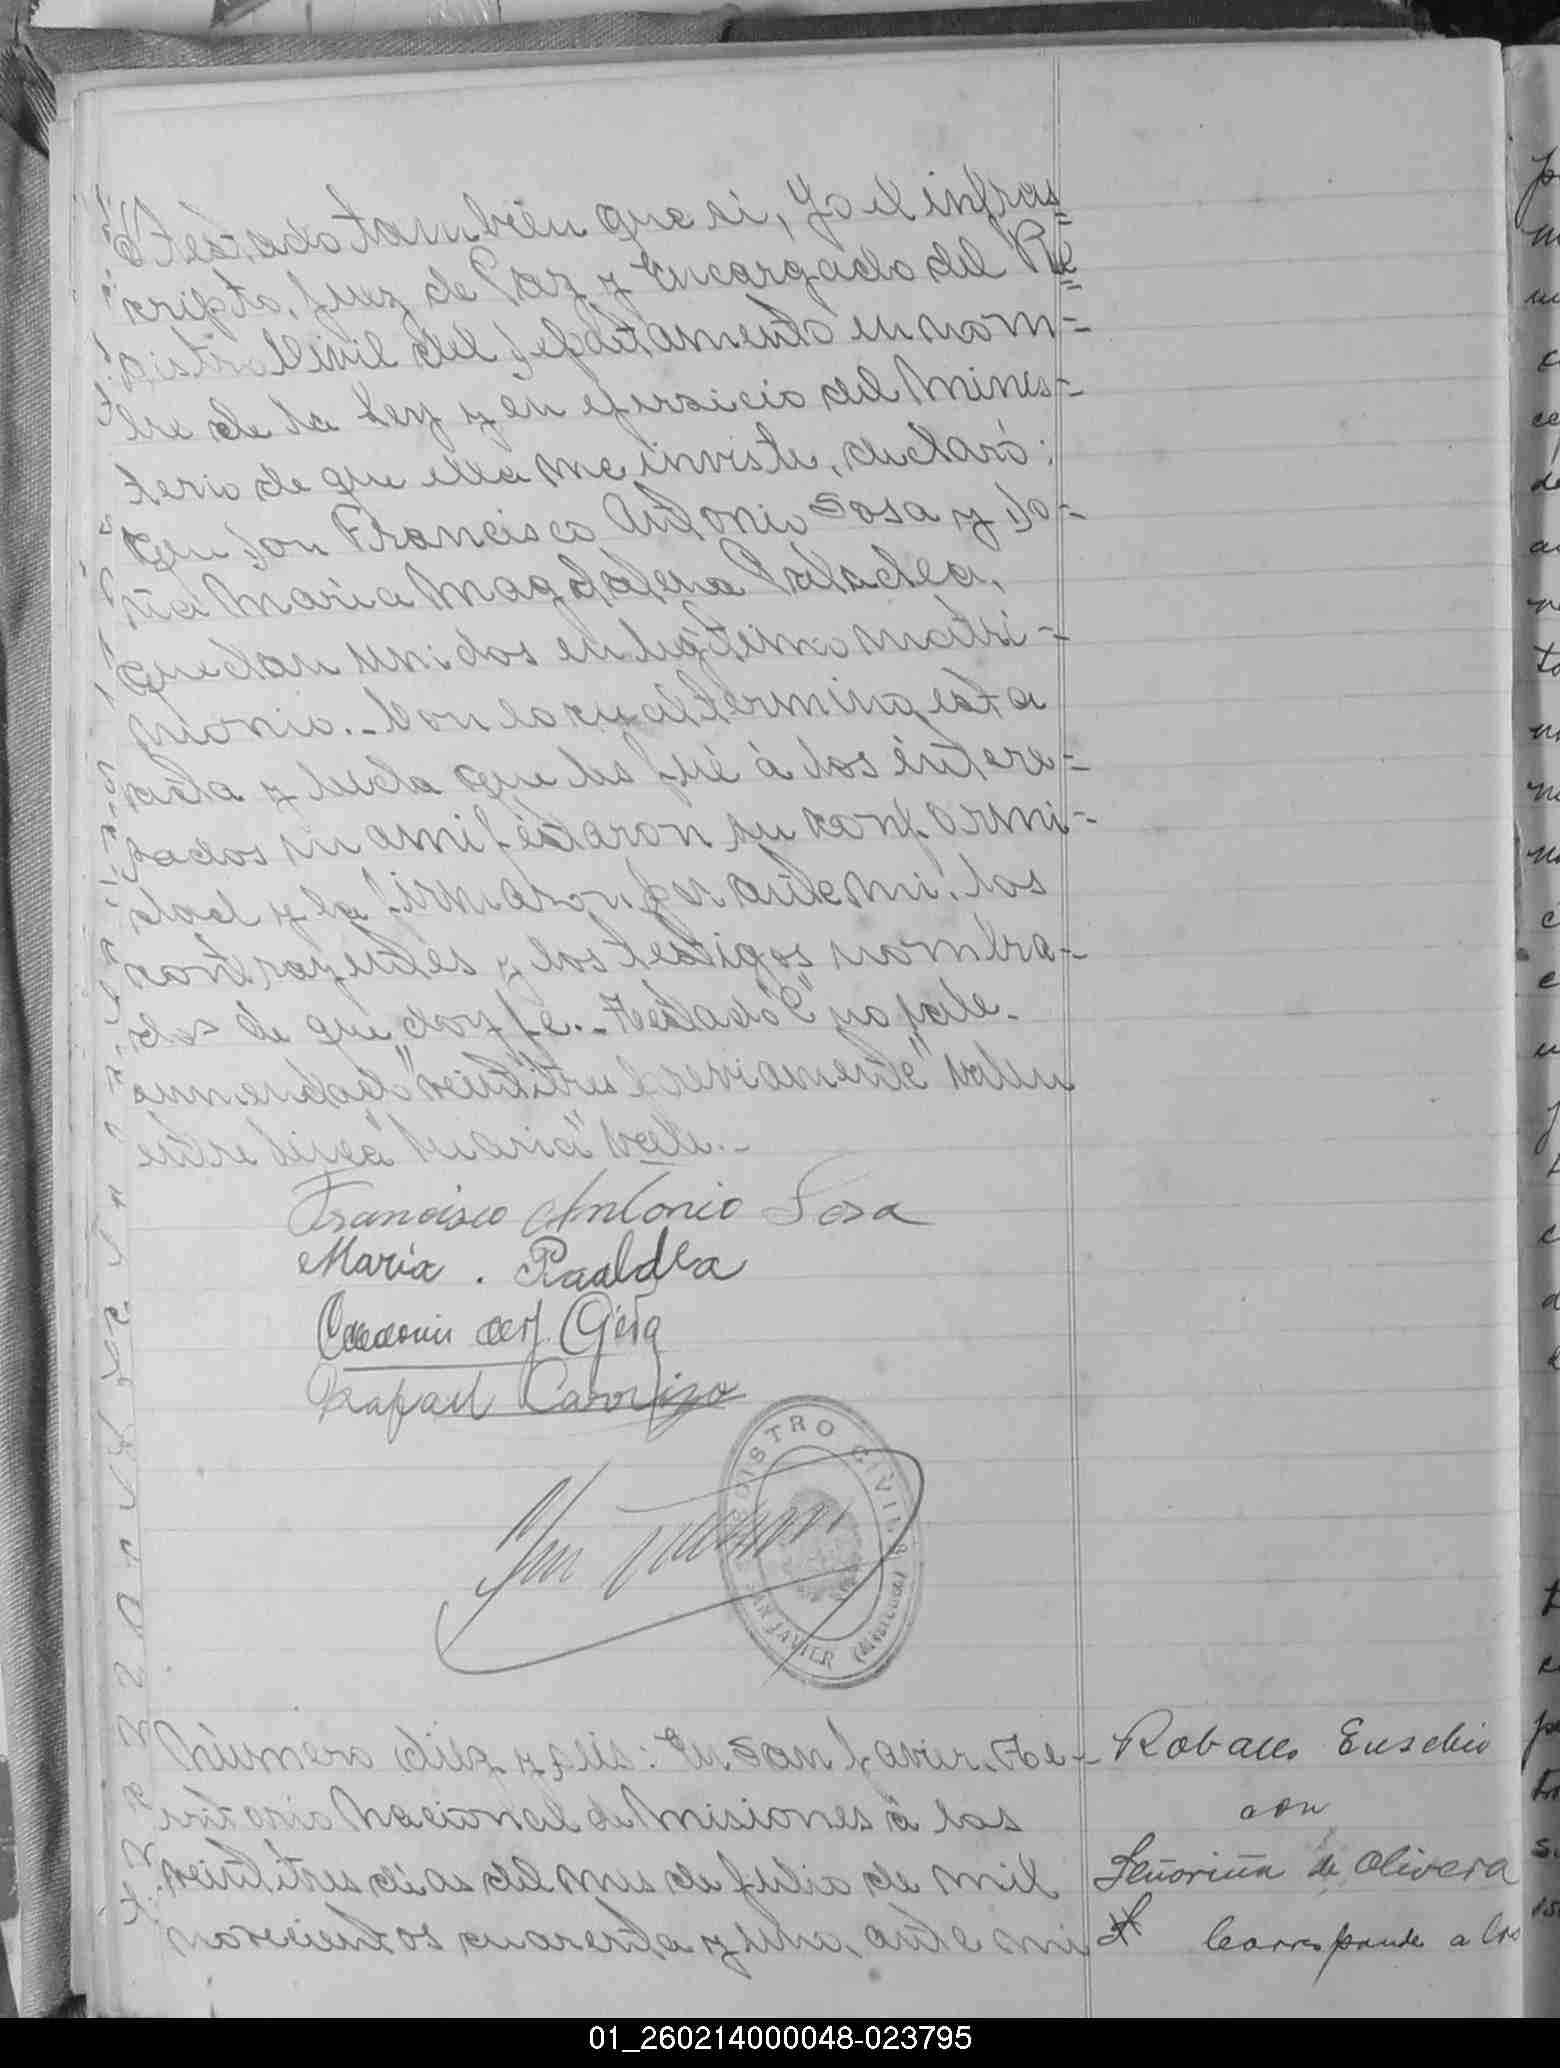 testado tambien que si, Yo el infras=
cripto, Juez de Paz y Encargado del Re=
gistro Civil del Departamento en nom=
bre de la Ley y en ejersicio del Mines=
terio de que ella me inviste, declaró:
que Don Francisco Antonio Sosa y Do=
ña Maria Magdalena
quedan unidos en legitimo matri=
monio.- Con lo cual termino esta
acta y leida que les fué á los intere=
sados manifestaron su conformi=
dad y la firmaron, por ante mi, los
contrayentes y los testigos nombra=
dos de que doy fé.- Testado no vale-
enmendado "veintitres previamente" valen
entre linea "Maria" vale.-
Francisco Antonio Sosa
Maria .
Rafael Carrizo
REGISTRO CIVIL
SAN JAVIER (MISIONES)
Número diez y seis: En San Javier, Te=
rritorio Nacional de Misiones á los
veintitres dias del mes de Julio de mil
novecientos cuarenta y uno, ante mi
Roballo Eusebio
con
Señoriña de Olivera
Corresponde a los
01_260214000048-023795